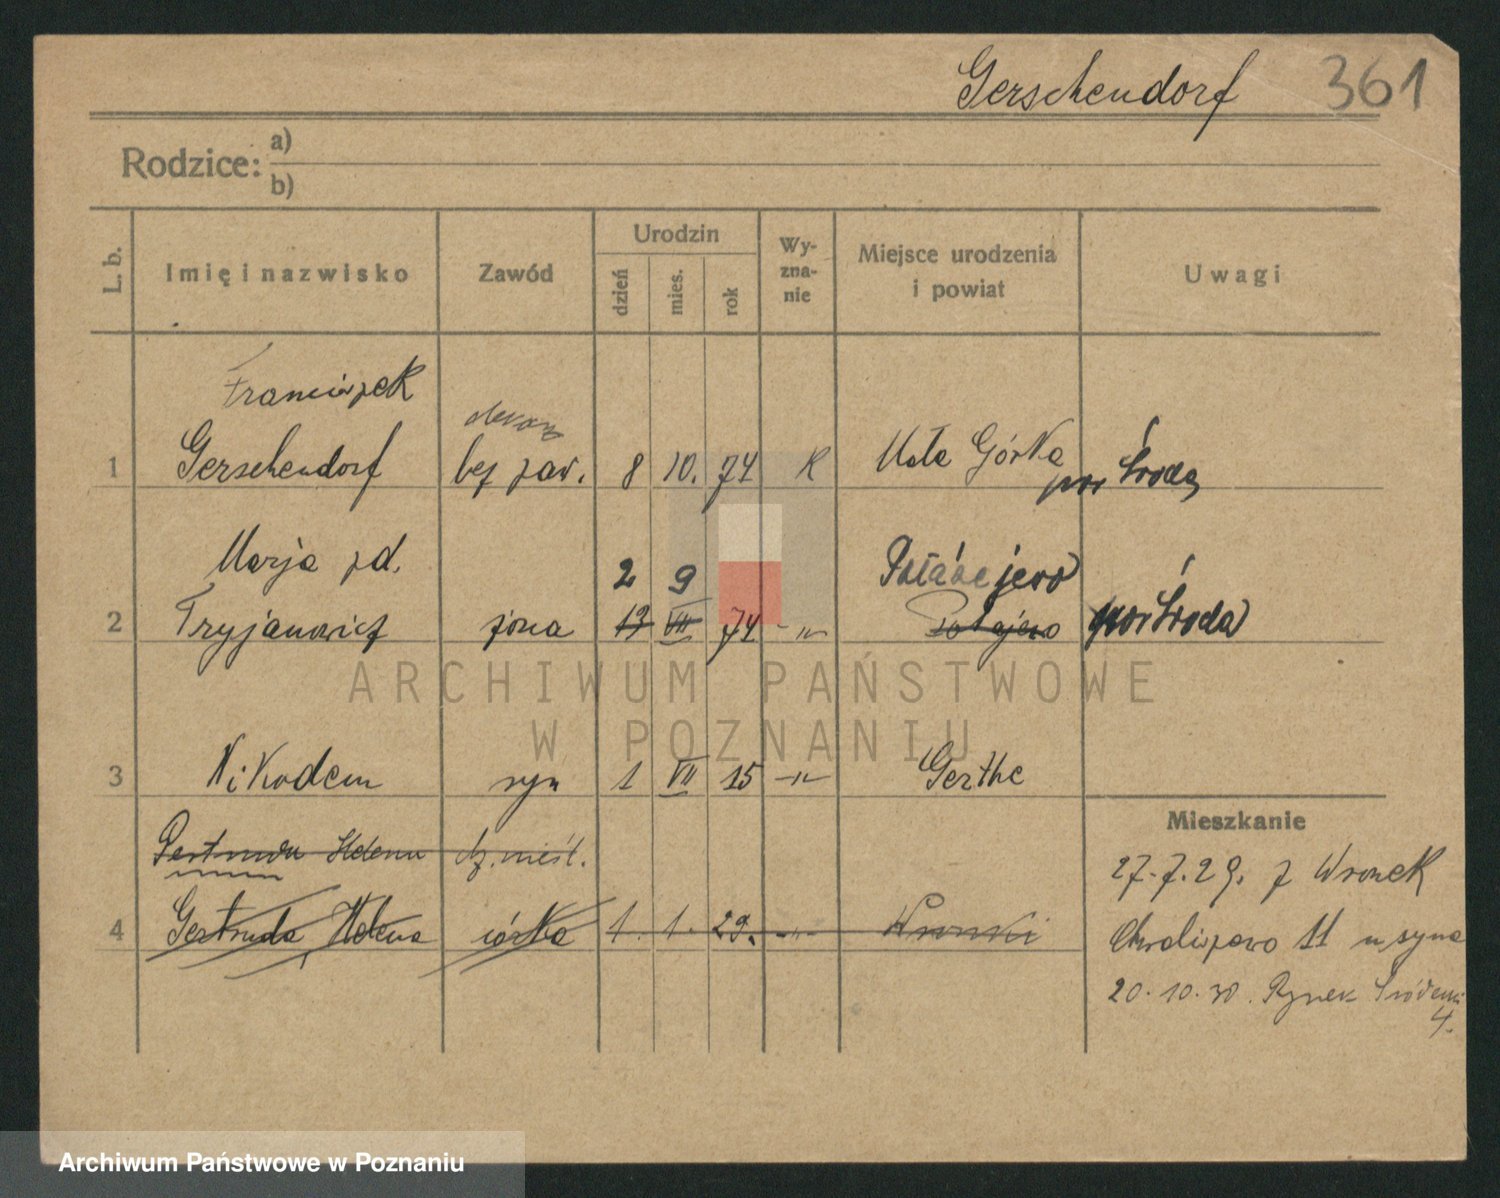 Gerschendorf 361
Rodzice: a)
b)
L. b.
Imię i nazwisko
Zawód
Urodzin
dzień
mies.
rok
Wy-
zna-
nie
Miejsce urodzenia
i powiat
Uwagi
Franciszek
1 Gerschendorf bez zaw. 8 10. 74 K Mała Górka pow Środa
Marja zd. 2 9
2 Tryjanowicz żona 12 VII 74 -"- pow Środa
ARCHIWUM PAŃSTWOWE
W POZNANIU
3 Nikodem syn 1 VII 15 -"- Gerthe
Mieszkanie
Gertruda Helena dz. nieśl.
27.7.29. z Wronek
4 Gertruda Helena córka 1. 1. 29. -"- Wronki
Chwaliszewo 11 u syna
20.10.30. Rynek Śródecki
4.
Archiwum Państwowe w Poznaniu